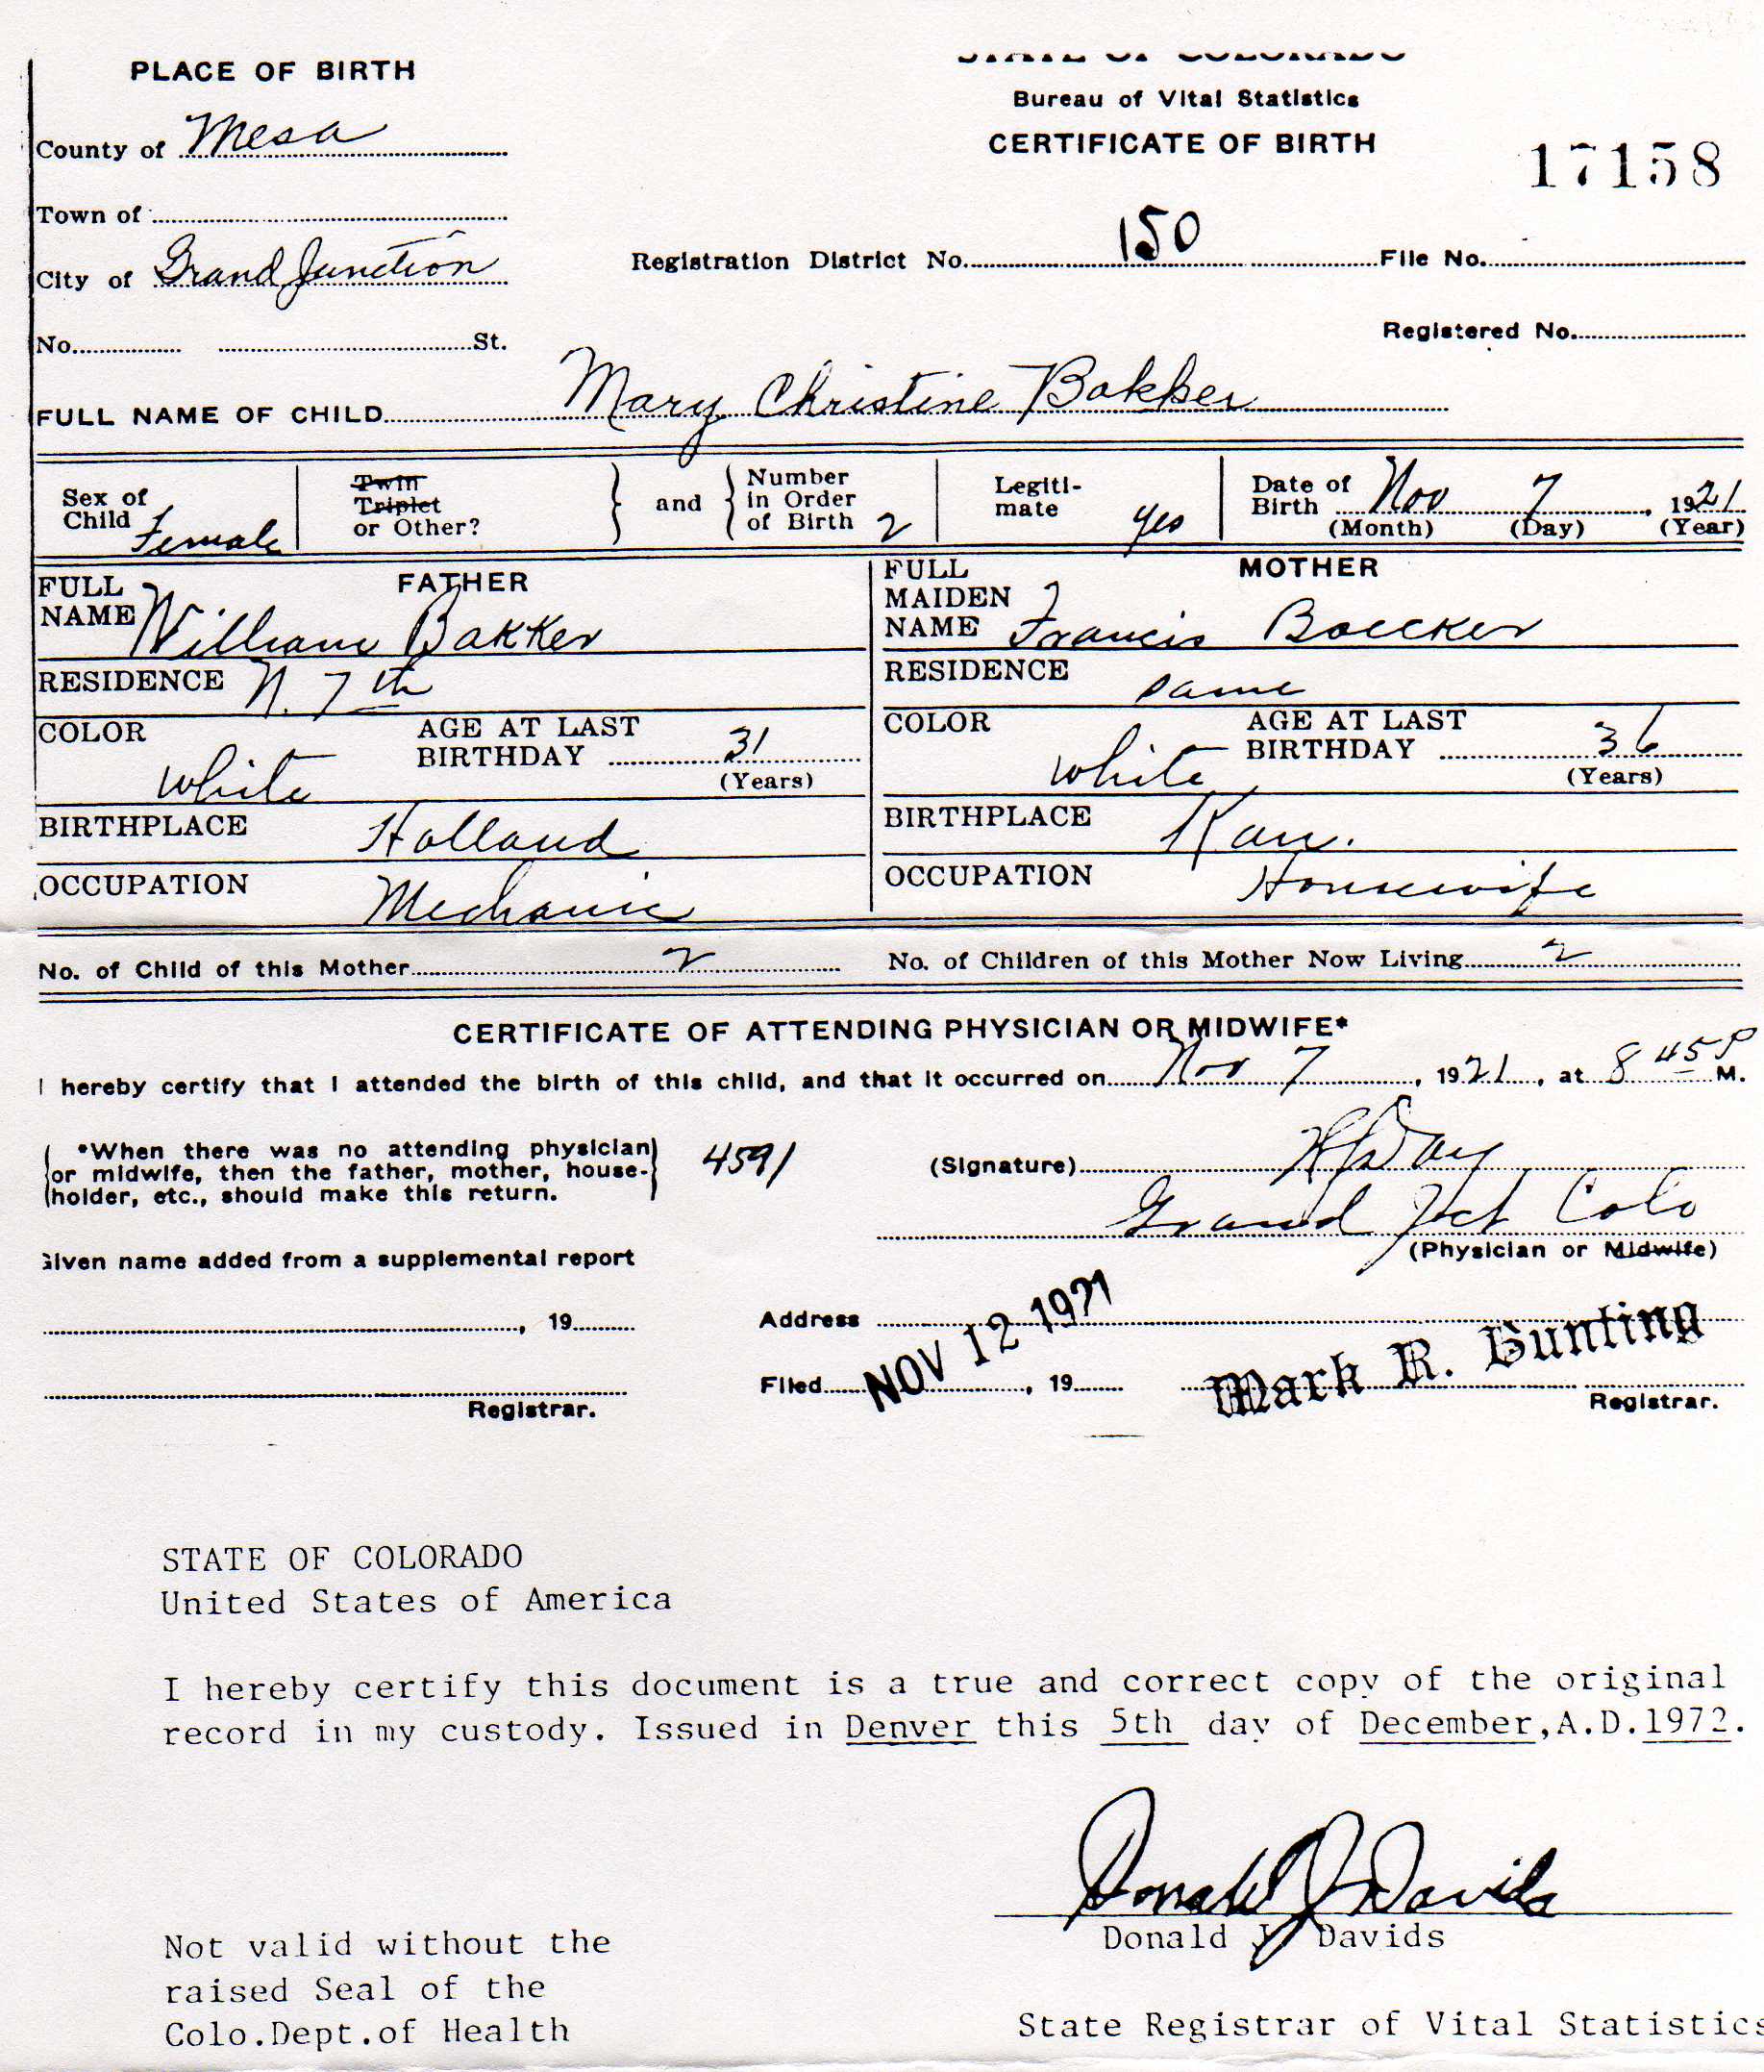 PLACE OF BIRTH
STATE OF COLORADO
Bureau of Vital Statistics
CERTIFICATE OF BIRTH
17158
County of Mesa
Town of
City of Grand Junction
Registration District No. 150 File No.
No. St.
Registered No.
FULL NAME OF CHILD Mary Christine Bakker
Sex of Child Female
Twin Triplet or Other?
and
Number in Order of Birth 2
Legiti-mate yes
Date of Birth Nov 7, 1921
(Month) (Day) (Year)
FATHER
FULL NAME William Bakker
RESIDENCE N. 7th
COLOR white
AGE AT LAST BIRTHDAY 31
(Years)
BIRTHPLACE Holland
OCCUPATION Mechanic
MOTHER
FULL MAIDEN NAME Francis Boecker
RESIDENCE same
COLOR white
AGE AT LAST BIRTHDAY 36
(Years)
BIRTHPLACE Kan.
OCCUPATION Housewife
No. of Child of this Mother 2 No. of Children of this Mother Now Living 2
CERTIFICATE OF ATTENDING PHYSICIAN OR MIDWIFE*
I hereby certify that I attended the birth of this child, and that it occurred on Nov 7, 1921, at 8 45 P M.
*When there was no attending physician
or midwife, then the father, mother, house-
holder, etc., should make this return.
4591
(Signature) Day
Grand Jct Colo
(Physician or Midwife)
Given name added from a supplemental report
, 19
Registrar.
Address
Filed NOV 12 1921, 19
Mark R. Bunting
Registrar.
STATE OF COLORADO
United States of America
I hereby certify this document is a true and correct copy of the original
record in my custody. Issued in Denver this 5th day of December,A.D.1972.
Donald J. Davids
Donald J. Davids
Not valid without the
raised Seal of the
Colo.Dept.of Health
State Registrar of Vital Statistics